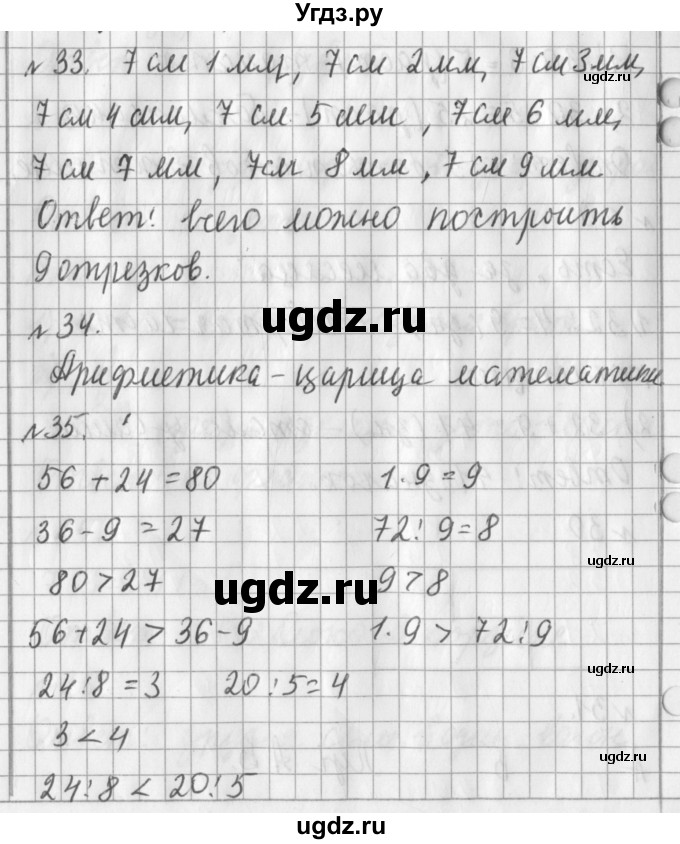 Угдз.ру
№ 33. 7 см 1 мм, 7 см 2 мм, 7 см 3 мм,
ugdz.ru
7 см 4 мм, 7 см 5 мм, 7 см 6 мм,
7 см 7 мм, 7 см 8 мм, 7 см 9 мм.
ugdz.ru
Ответ: всего можно построить
9 отрезков.
ugdz.ru
№ 34.
Арифметика - царица математики
№ 35.
56 + 24 = 80 1 · 9 = 9
36 - 9 = 27 72 : 9 = 8
ugdz.ru
80 > 27 9 > 8
ugdz.ru
56 + 24 > 36 - 9 1 · 9 > 72 : 9
ugdz.ru
24 : 8 = 3 20 : 5 = 4
3 < 4
ugdz.ru
24 : 8 < 20 : 5
ugdz.ru